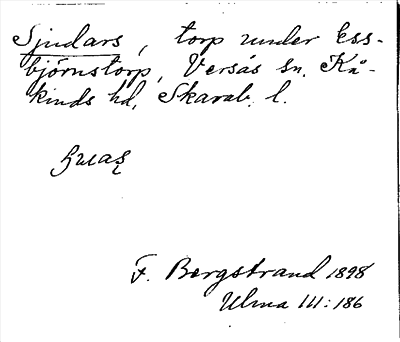 Sjudars, torp under Ess-
björnstorp, Versås sn. Kå-
kinds hd, Skarab. l.
F. Bergstrand 1898
Ulma III: 186